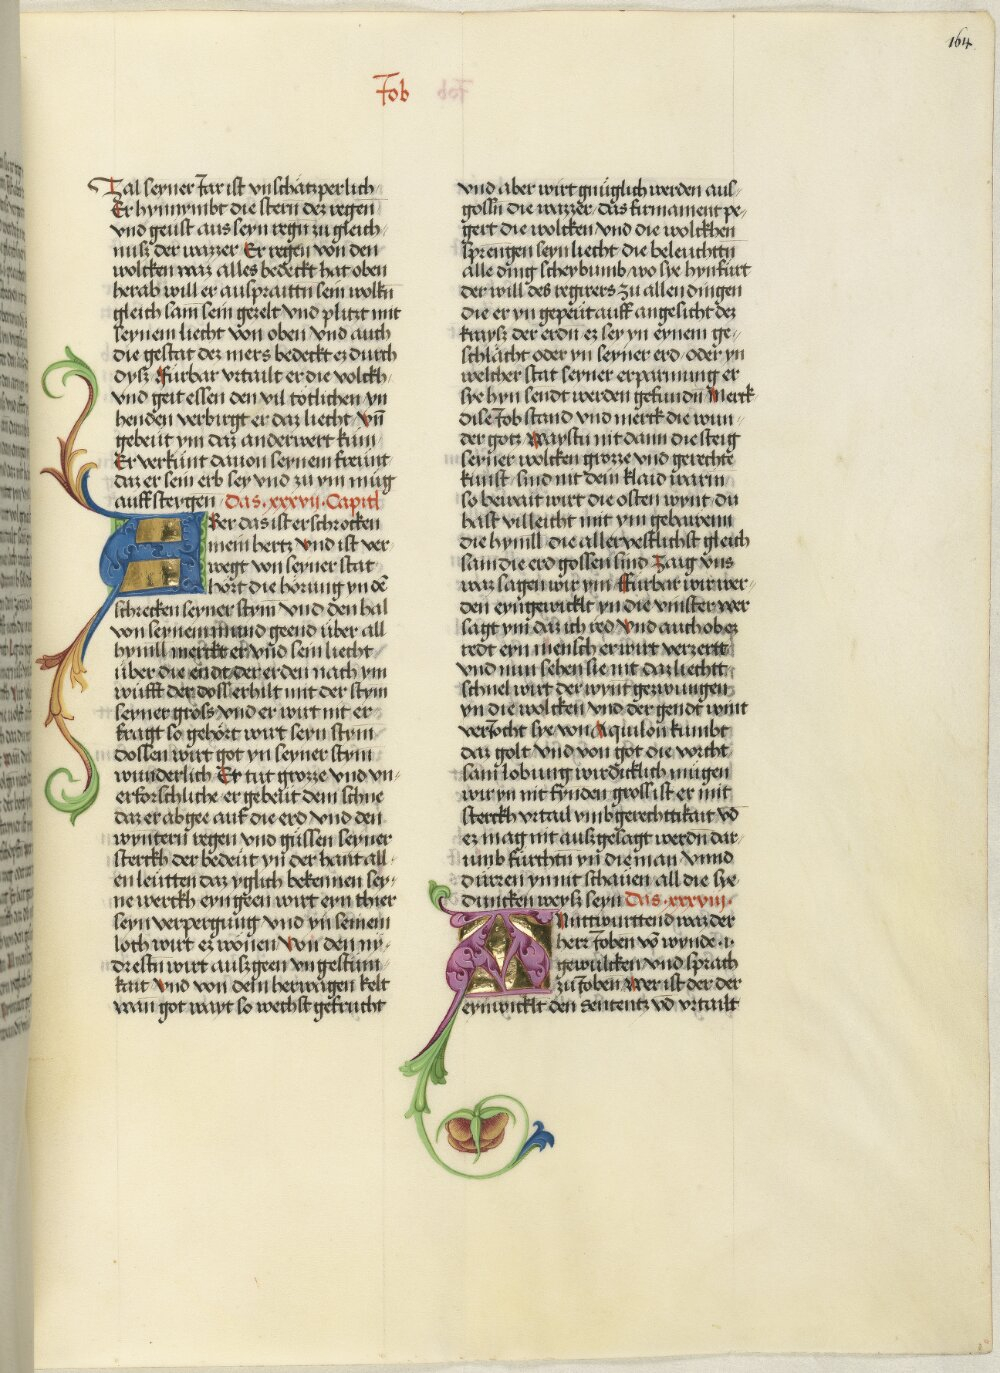 164
Job
Zal seyner Jar ist vnschätzperlich
Er hynnymbt die stern dez regen
vnd geust aus seyn regn zu gleich⸗
nusz der wazzer Er regen von den
wolcken waz alles bedeckt hat oben
herab will er auspraittn sein wolkn
gleich sam sein gezelt vnd plitzt mit
seynem liecht von oben vnd auch
die gestat dez mers bedeckt er durch
dysz Furbar vrtailt er die volckh
vnd geit essen den vil tötlichen yn
henden verbirgt er daz liecht vn̄
gebeut ym daz anderwert kum
Er verkunt dauon seynem freunt
daz er sein erb sey vnd zu ym mug
auffsteygen Das .xxxvii. Capitl
Ber das ist erschrocken
mein hertz vnd ist ver
wegt von seyner stat
hört die hörung yn dē
schrecken seyner stym vnd den hal
von seynem mund geend über all
hymll merckt er vnd sein liecht
über die endt der erden nach ym
wufft der doss erhilt mit der stym
seyner gröss vnd er wirt nit er
fragt so gehört wirt seyn stym
dossen wirt got yn seyner stym
wunderlich Er tut grozze vnd vn⸗
erforschliche er gebeut dem schne
daz er abgee auf die erd vnd den
wyntern regen vnd güssen seyner
sterckh der bedeut yn der hant all
en leutten daz yglich bekennen sey⸗
ne werckh eyngeen wirt eyn thier
seyn verpergung vnd yn seinem
loch wirt ez wonen von den ny⸗
drestn wirt auszgeen vngestum⸗
kait vnd von dem herwagen kelt
wan got wayt so wechst gefrucht
vnd aber wirt gnüglich werden aus⸗
gossn die wazzer das firmament pe⸗
gert die wolcken vnd die wolckhen
sprengen seyn liecht die beleuchttn
alle ding scheybumb wo sye hynfürt
der will des regirers zu allen dingen
die er yn gepeut auff angesicht dez
kraysz der erdn ez sey yn eynem ge⸗
schlächt oder yn seyner erd oder yn
welcher stat seyner erparmung er
sye hyn sendt werden gefundn Merck
dise Job stand vnd merck die wun⸗
der gotz Waystu nit dann die steig
seyner wolcken grozze vnd gerechte
kunst sind nit dein klaid warm
so bewait wirt die osten wynt du
hast villeicht mit ym gebawenn
die hymll die aller vestlichst gleich
sam die erd gossen sind Zaig vns
waz sagen wir ym Furbar wir wer⸗
den eyngewicklt yn die vinster wer
sagt ym daz ich red vnd auch ob ez
redt eyn mensch er wirt verzertt
vnd nun sehen sie nit daz liechtt
schnel wirt der wynt gezwungen
yn die wolcken vnd der gendt wint
verJocht sye von Aquilon kumbt
daz golt vnd von got die vorcht
sam lobung wirdicklich mugen
wir yn nit fynden gross ist er mit
sterckh vrtail vmb gerechttikait vd
ez mag nit auszgesagt werdn dar
umb furchtn yn die man vnnd
durren yn nit schauen all die sye
duncken weysz seyn Das .xxxviii.
Nttwurttend waz der
herz Joben vō wynde .1.
gewulcken vnd sprach
zu Joben Wer ist der der
eynwicklt den sententz vd vrtailt